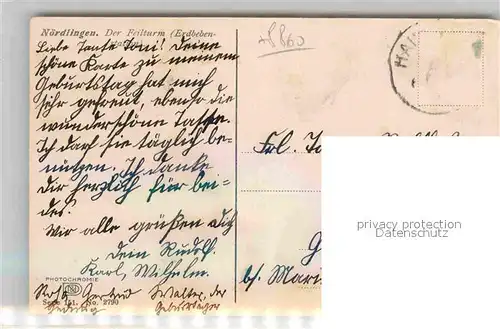 Nördlingen. Der Feilturm (Erdbeben-
Liebe Tante Toni! Deine
schöne Karte zu meinem
Geburtstag hat mich
sehr gefreut, ebenso die
wunderschöne Tasse.
Ich darf sie täglich be-
nützen. Ich danke
Dir herzlich für bei-
des.
Wir alle grüßen Dich
Dein Rudolf.
Karl, Wilhelm
Rosl, Gertrud Walter, der
Hedwig Geburtstäger
PHOTOCHROMIE
Serie 151. No. 2790
+8860
HAI
Frl.
G
b/ Mari
privacy protection
Datenschutz